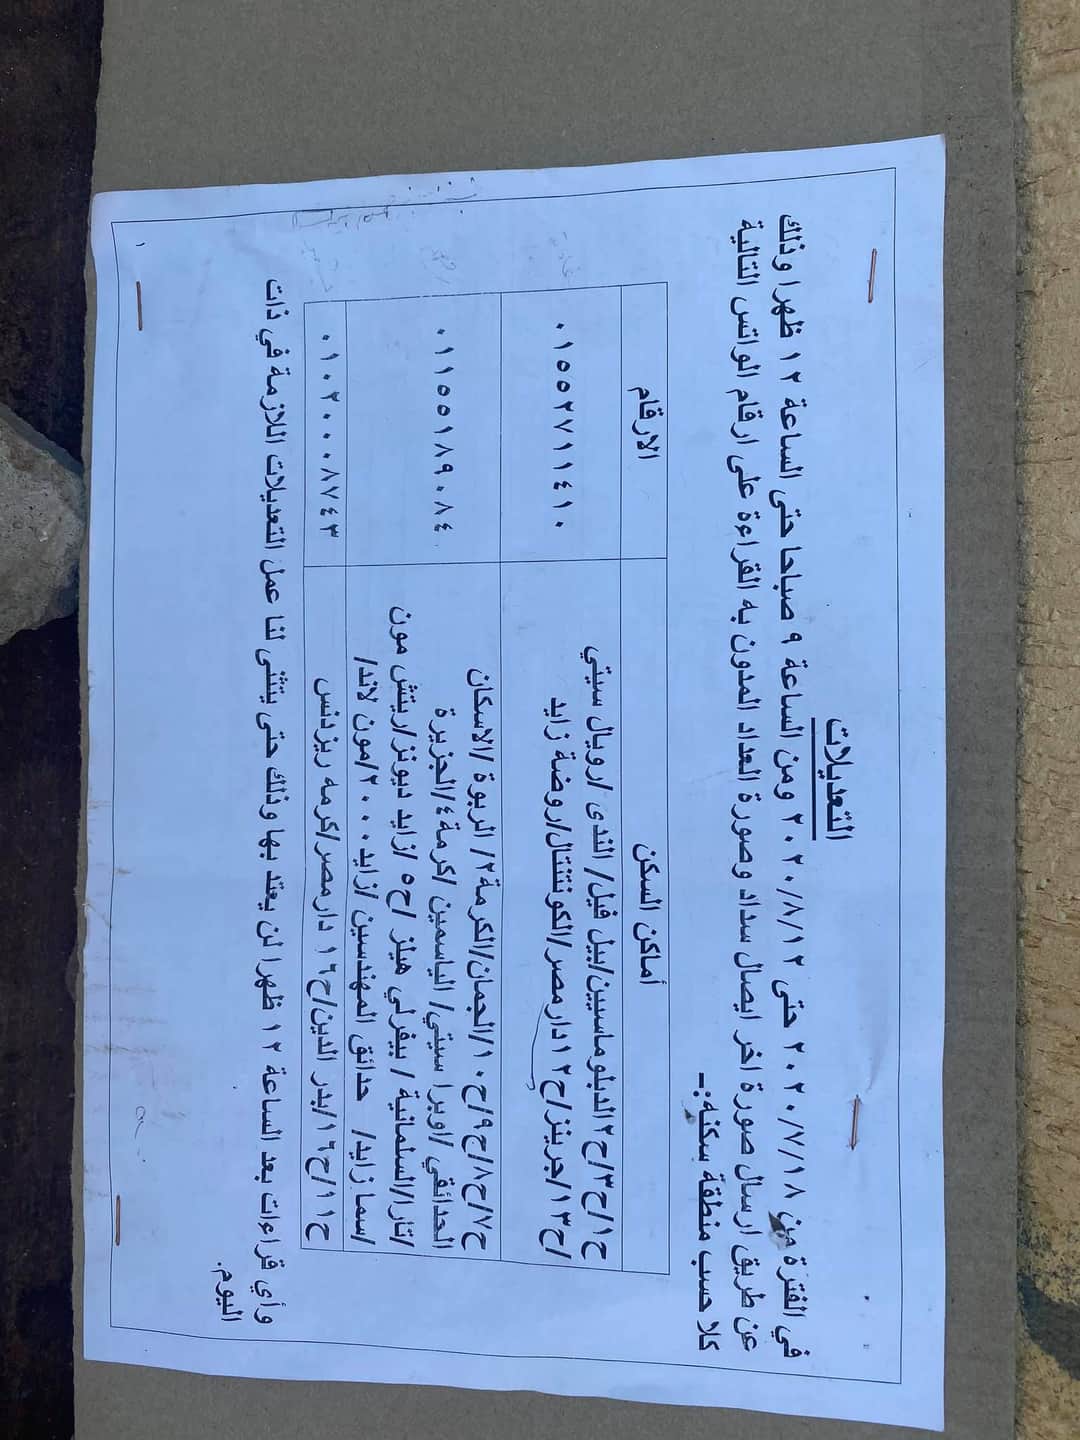 التعديلات
في الفترة من ٢٠٢٠/٧/١٨ حتى ٢٠٢٠/٨/١٢ ومن الساعة ٩ صباحا حتى الساعة ١٢ ظهرا وذلك
عن طريق ارسال صورة اخر ايصال سداد وصورة العداد المدون به القراءة على ارقام الواتس التالية
كلا حسب منطقة سكنه:-
أماكن السكن الارقام
ح١/ح٣/ح٢الدبلوماسيين/بيل فيل/ الندى /رويال سيتي ٠١٥٥٢٧١١٤١٠
/ح١٣/جرينز/ح١٢دارمصر/الكونتننتال/روضة زايد
ح٧/ح٨/ح٩/ح١٠/الجمان/الكرمة٢/ الربوة /الاسكان
الحدائقي /اوبرا سيتي/ الياسمين /كرمة٤/الجزيرة ٠١١٥٥١٨٩٠٨٤
/تارا/السلمانية / بيفرلي هيلز /ح٥ /زايد ديونز/ريتش مون
/سما زايد/ حدائق المهندسين /زايد٢٠٠٠/مون لاند/
ح١١/ح١٦/بدر الدين/ح١٦ دار مصر/كرمه ريزدنس ٠١٠٢٠٠٠٨٧٤٣
وأي قراءات بعد الساعة ١٢ ظهرا لن يعتد بها وذلك حتى يتثنى لنا عمل التعديلات اللازمة في ذات
اليوم.
١